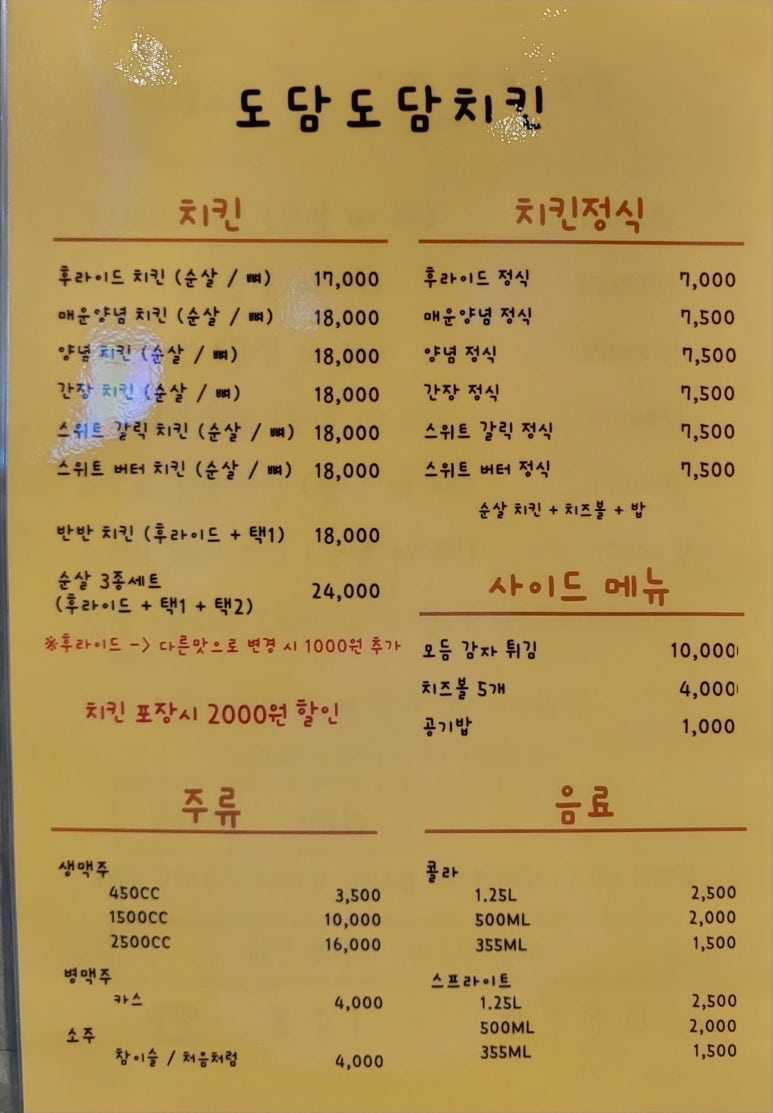 도담도담치킨
치킨
후라이드 치킨 (순살 / 뼈) 17,000
매운양념 치킨 (순살 / 뼈) 18,000
양념 치킨 (순살 / 뼈) 18,000
간장 치킨 (순살 / 뼈) 18,000
스위트 갈릭 치킨 (순살 / 뼈) 18,000
스위트 버터 치킨 (순살 / 뼈) 18,000
반반 치킨 (후라이드 + 택1) 18,000
순살 3종세트
(후라이드 + 택1 + 택2) 24,000
※후라이드 -> 다른맛으로 변경 시 1000원 추가
치킨 포장시 2000원 할인
치킨정식
후라이드 정식 7,000
매운양념 정식 7,500
양념 정식 7,500
간장 정식 7,500
스위트 갈릭 정식 7,500
스위트 버터 정식 7,500
순살 치킨 + 치즈볼 + 밥
사이드 메뉴
모듬 감자 튀김 10,000
치즈볼 5개 4,000
공기밥 1,000
주류
생맥주
450CC 3,500
1500CC 10,000
2500CC 16,000
병맥주
카스 4,000
소주
참이슬 / 처음처럼 4,000
음료
콜라
1.25L 2,500
500ML 2,000
355ML 1,500
스프라이트
1.25L 2,500
500ML 2,000
355ML 1,500